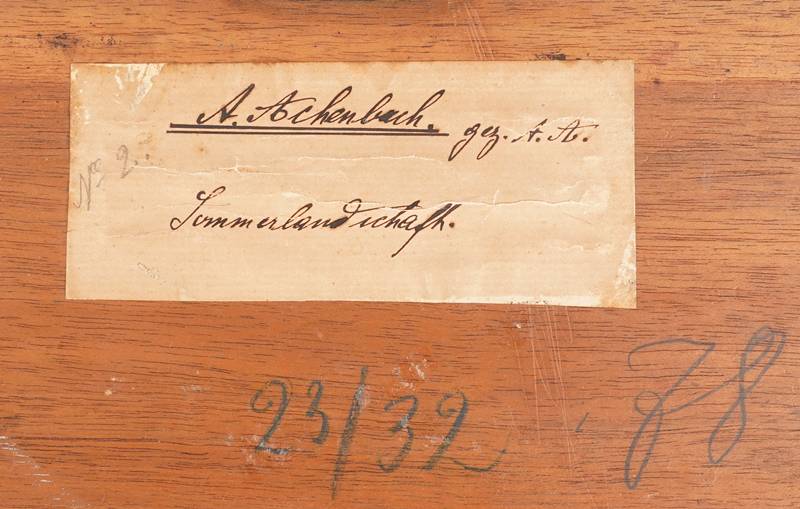 A. Achenbach. gez. A. A.
No 2.
Sommerlandschaft.
23/32
78